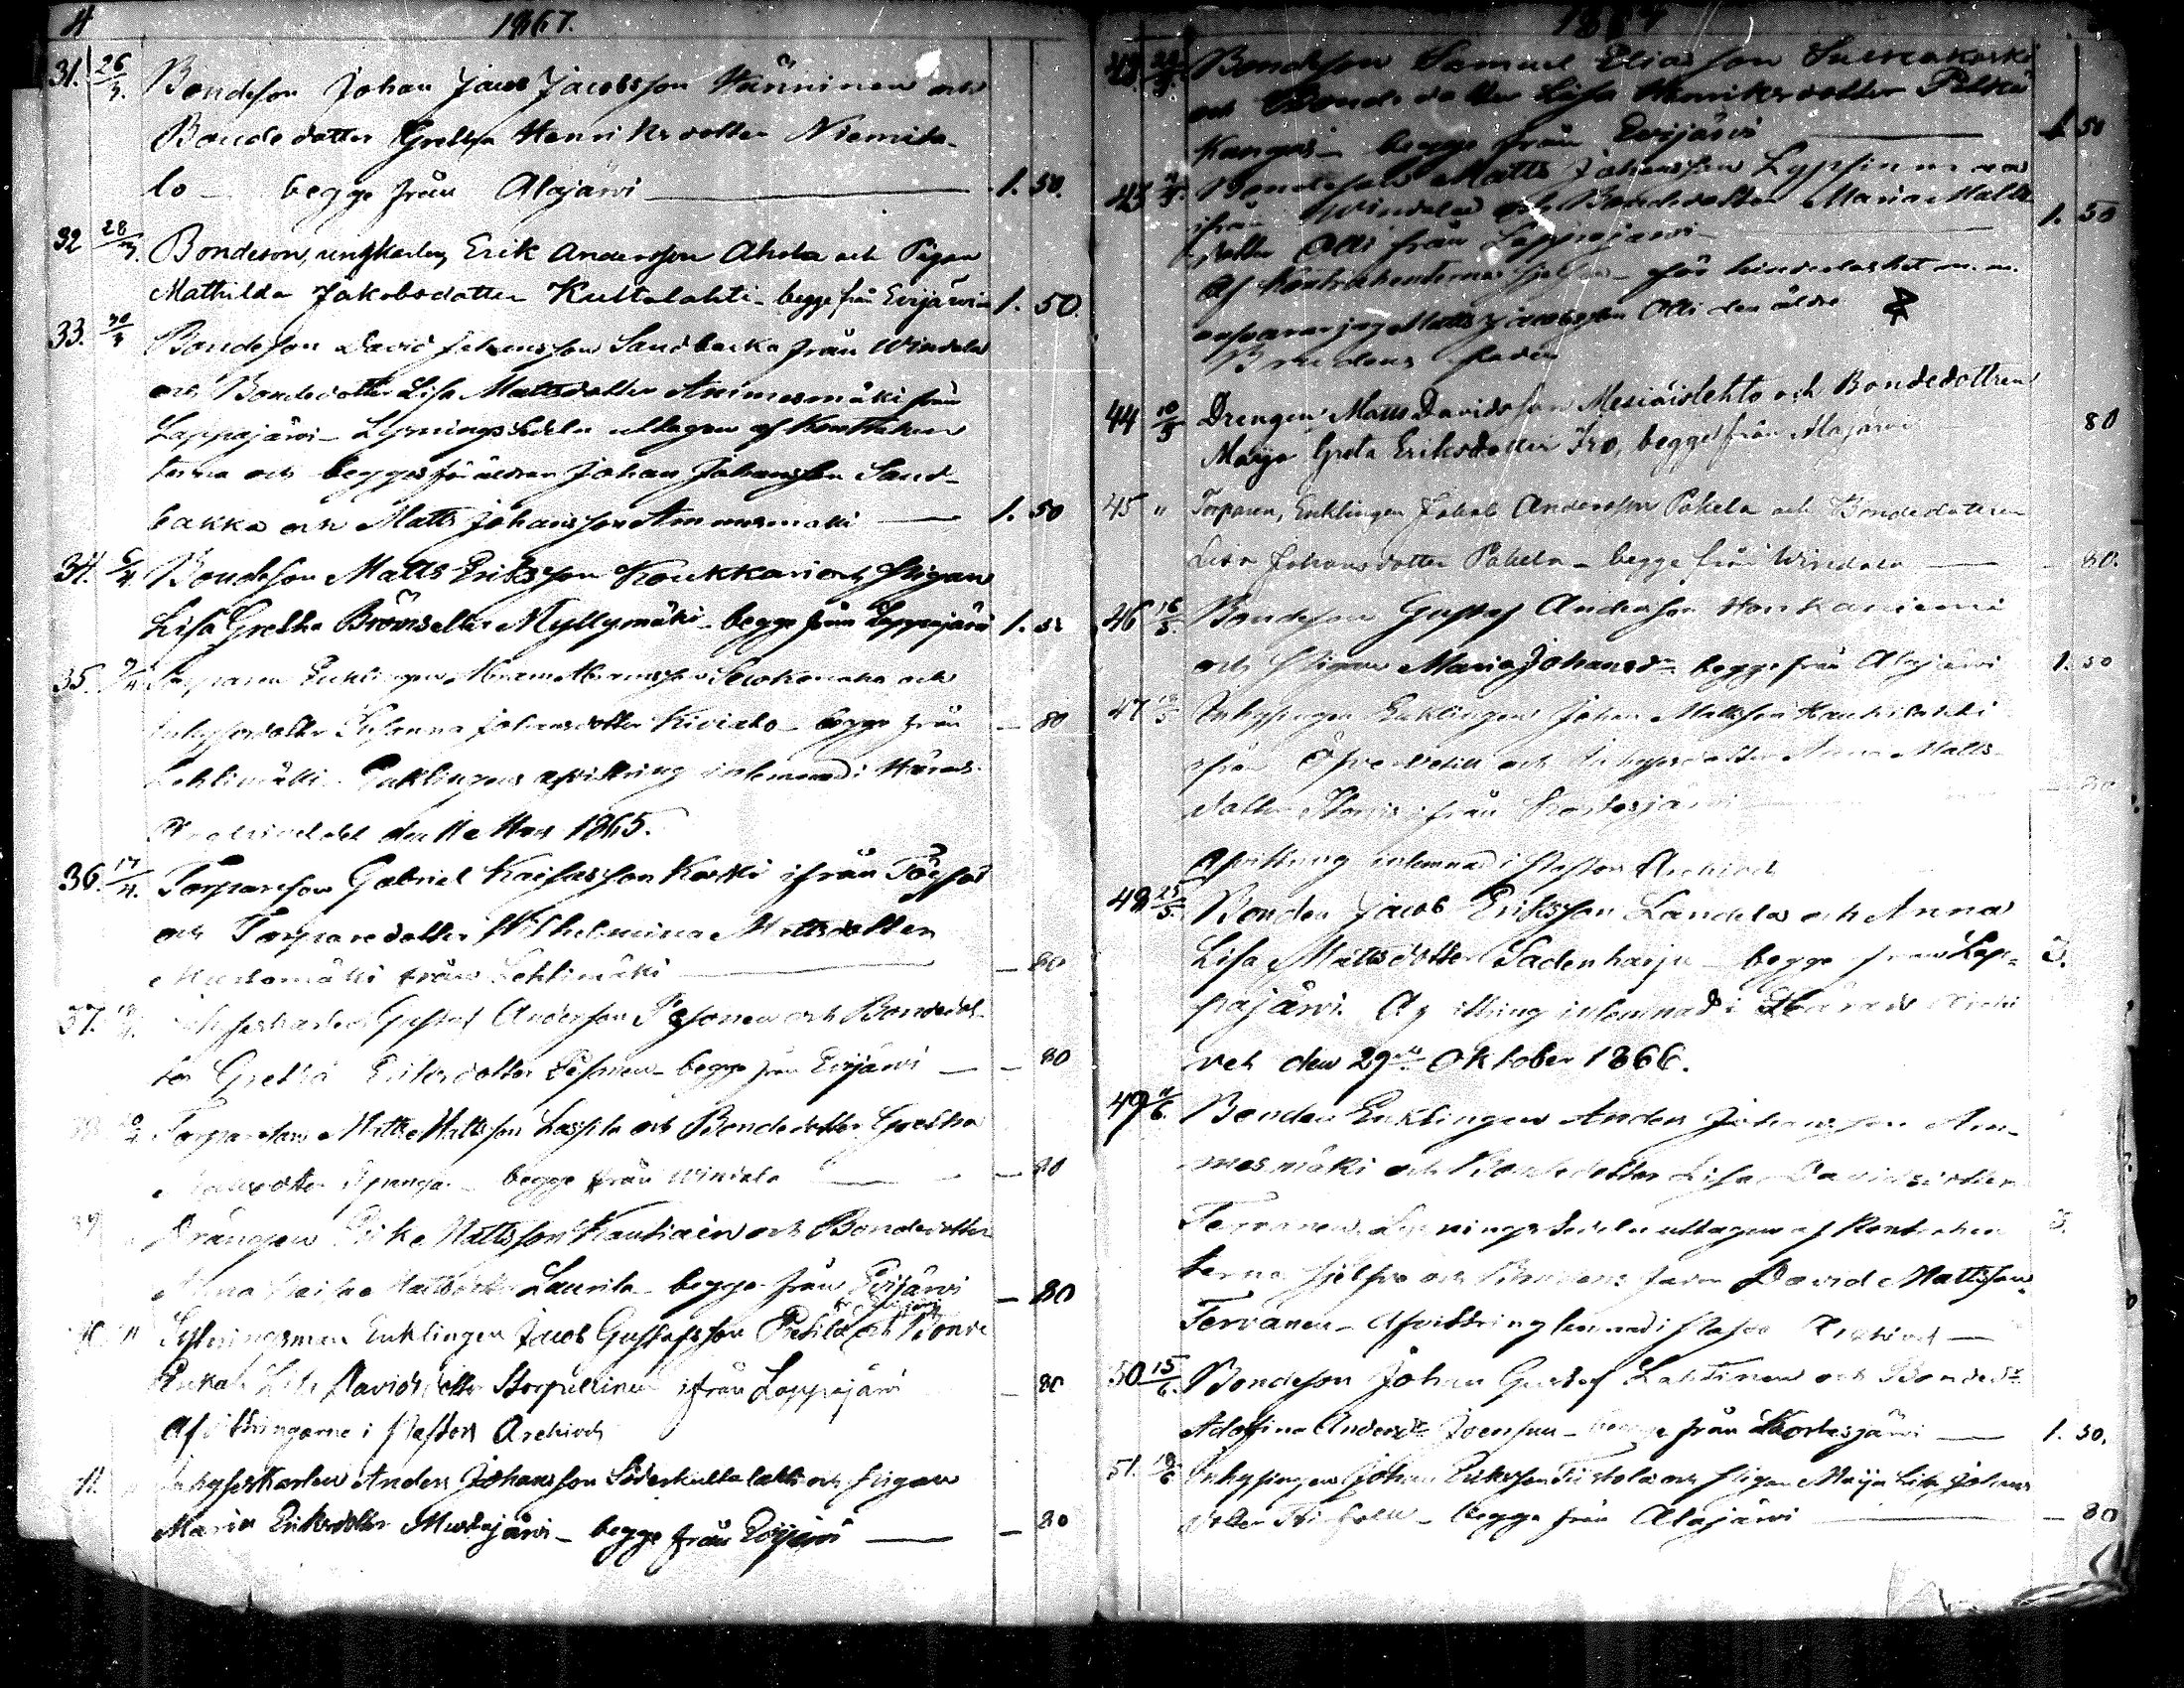 4 1867.
31. 26/3. Bondeson Johan Jacob Jacobsson Känninen och
Bondedotter Gretha Henriksdotter Niemita-
lo — begge från Alajärvi — 1. 50.
32 28/3. Bondeson, ungkarlen, Erik Andersson Ahola och Pigan
Mathilda Jakobsdotter Kultalahti – begge från Evijärvi 1. 50.
33. 30/3 Bondeson David Johansson Sandbacka från Windala
och Bondedotter Lisa Mattsdotter Ammesmäki från
Lappajärvi – Lysningssedeln uttagen af Kontrahen
terna och begges föräldrar Johan Johansson Sand-
backa och Matts Johansson Ammesmäki — 1. 50
34. 6/4. Bondeson Matts Eriksson Koukkari och Pigan
Lisa Gretha Myllymäki – begge från Lappajärvi 1. 50
35. Torparen Enklingen Abram Abramsson och
Inhysesdotter Susanna Johansdotter Kiviaho – begge från — 80
Lehtimäki. Enklingens afvittring inlemnad i Härads
den 11e Mars 1865.
36. 17/4. Torpareson Gabriel Kaisasson Koski ifrån Töysä
och Torparedotter Wilhelmina Mattsdotter
Mustamäki från Lehtimäki — — 80
37. Inhyseskarlen Gustaf Andersson Pesonen och Bondedot-
ter Gretha Eriksdotter Pesonen – begge från Evijärvi — — 80
Torpareson Matts Mattsson Lassila och Bondedotter Gretha
Mattsdotter – begge från Windala — — 80
39 Drängen Erik Mattsson Kauhiainen och Bondedotter
Anna Kaisa Mattsdotter Laurila – begge från Evijärvi — 80
" Sytningsman Enklingen Jacob Gustafsson och Bonde
Enkan Lisa Davidsdotter ifrån Lappajärvi — 80
Afvittringarne i Pastors Archivet
Inhyseskarlen Anders Johansson och Pigan
Maria Eriksdotter Mustajärvi – begge från Evijärvi — — 80
1867
Bondeson Samuel Eliasson
och Bondedotter Lisa Henriksdotter
kangas – begge från Evijärvi — 1. 50
43 Bondeson Matts Johansson
ifrån Windala och Bondedotter Maria Matts 1. 50
dotter Olli från Lappajärvi —
Af Kontrahenterna sjelfva – för hinderlöshet m.m.
ansvarar jag Matts Jacobsson Olli den äldre
Brudens fader
44 10/5 Drengen Matts Davidsson Mesiäislehto och Bondedottren
Maija Greta Eriksdotter Iro, begge från Alajärvi 80
45 " Torparen, Enklingen Jakob Andersson Pokela och Bondedottren
Lisa Johansdotter Pokela – begge från Windala — 80.
46 16/5. Bondeson Gustaf Andersson Honkaniemi
och Pigan Maria Johansd:r begge från Alajärvi 1. 50
47 Inhysingen Enklingen Johan Mattsson
ifrån Öfvervetil och Inhysesdotter Anna Matts-
dotter ifrån Kortesjärvi — 80
Afvittring inlemnad i Pastors Archivet
48 25/5. Bonden Jacob Eriksson Landela och Anna
Lisa Mattsdotter Sadenharju – begge från Lap- 3.
pajärvi. Afvittring inlemnad i Härads Archi
vet den 29de Oktober 1866.
49 Bonden Enklingen Anders Johansson Am-
mesmäki och Bondedotter Lisa Davidsdotter
Tervanen Lysningssedeln uttagen af Kontrahen 3.
terna sjelfva och Brudens fader David Mattsson
Tervanen – Afvittring lemnad i Pastors Archivet —
50 15/6. Bondeson Johan Gustaf Lahtinen och Bonded:r
Adolfina Andersd:r Joensuu – begge från Kortesjärvi — 1. 50.
51. Inhysingen Johan Eriksson och Pigan Maija Lisa Johans
dotter – begge från Alajärvi — — 80